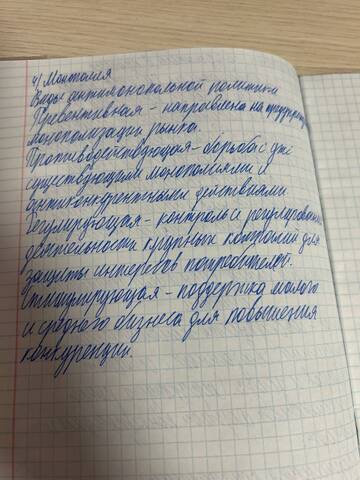 4) Монголия
Виды антимонопольной политики
Превентивная - направлена на предупреж
монополизации рынка.
Противодействующая - борьба с уже
существующими монополиями и
антиконкурентными действиями
Регулирующая - контроль и регулирование
деятельности крупных компаний для
защиты интересов потребителей.
Стимулирующая - поддержка малого
и среднего бизнеса для повышения
конкуренции.